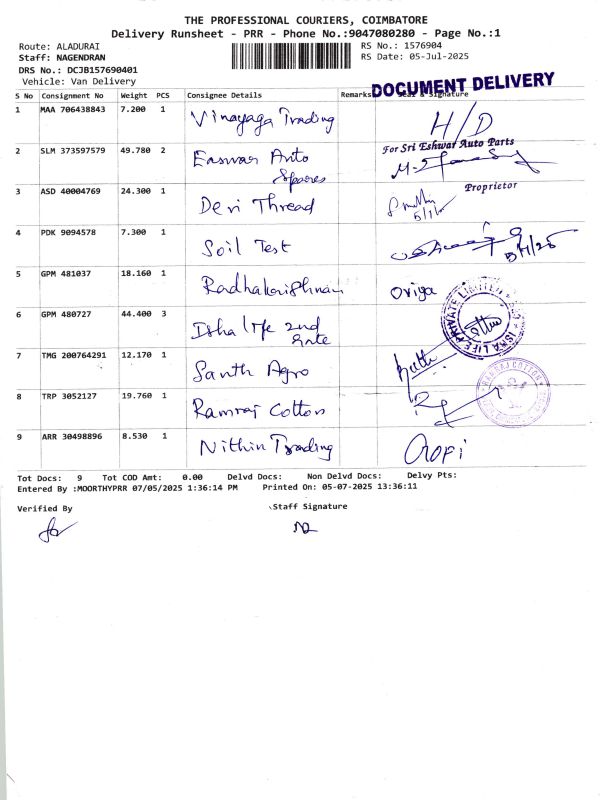 THE PROFESSIONAL COURIERS, COIMBATORE
Delivery Runsheet - PRR - Phone No.:9047080280 - Page No.:1
Route: ALADURAI
RS No.: 1576904
Staff: NAGENDRAN
RS Date: 05-Jul-2025
DRS No.: DCJB157690401
Vehicle: Van Delivery
DOCUMENT DELIVERY
S No Consignment No Weight PCS Consignee Details Remarks Signature
1 MAA 706438843 7.200 1 Vinayaga Trading H/D
2 SLM 373597579 49.780 2 Easwar Auto Spares
For Sri Eshwar Auto Parts
Proprietor
3 ASD 40004769 24.300 1 Devi Thread 5/7/25
4 PDK 9094578 7.300 1 Soil Test 5/7/25
5 GPM 481037 18.160 1 Radhakrishnan Oviya
6 GPM 480727 44.400 3 Isha life 2nd Gate
ISHA LIFE PRIVATE LIMITED
7 TMG 200764291 12.170 1 Santh Agro
8 TRP 3052127 19.760 1 Ramraj Cotton
RAMRAJ COTTON
9 ARR 30498896 8.530 1 Nithin Trading Gopi
Tot Docs: 9 Tot COD Amt: 0.00 Delvd Docs: Non Delvd Docs: Delvy Pts:
Entered By :MOORTHYPRR 07/05/2025 1:36:14 PM Printed On: 05-07-2025 13:36:11
Verified By Staff Signature